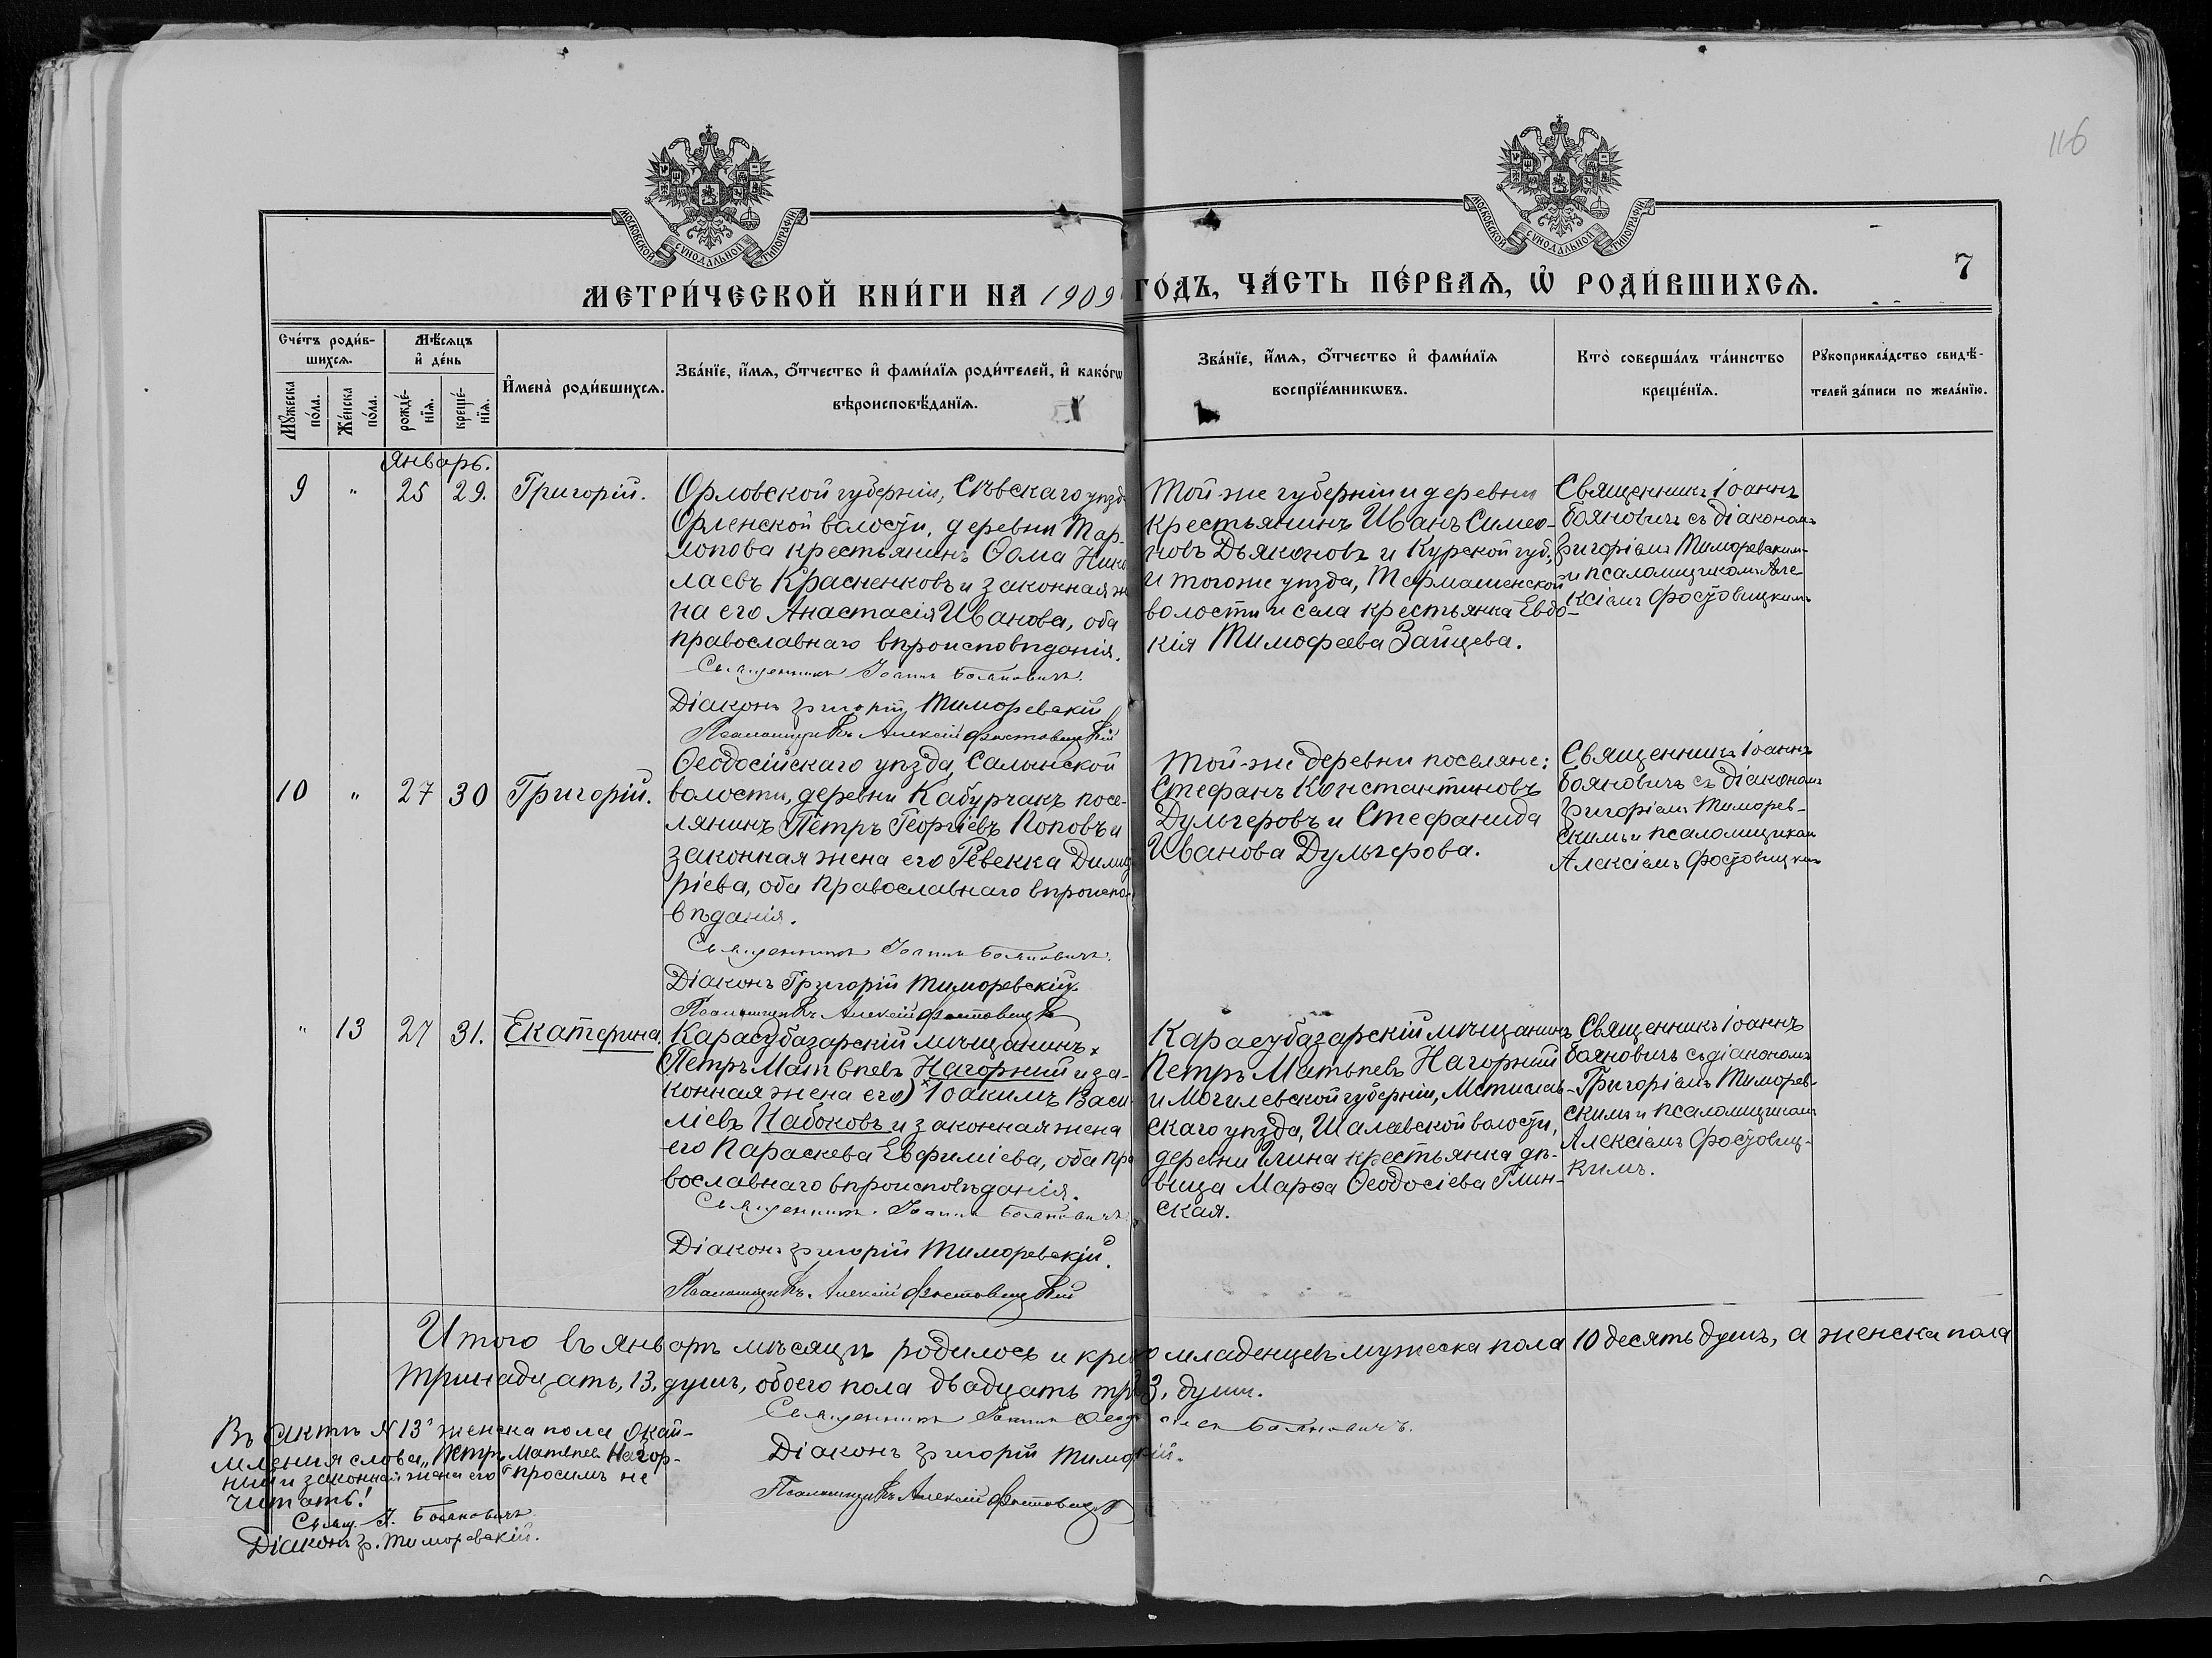 116
МОСКОВСКОЙ СѴНОДАЛЬНОЙ ТИПОГРАФІИ
МОСКОВСКОЙ СѴНОДАЛЬНОЙ ТИПОГРАФІИ
7
МЕТРИ́ЧЕСКОЙ КНИ́ГИ НА 1909 ГО́ДЪ, ЧА́СТЬ ПЕ́РВАѦ, Ѡ҆ РОДИ́ВШИХСѦ.
Сче́тъ роди́в-
шихсѧ.
Мꙋ́жеска по́ла.
Же́нска по́ла.
Мѣ́сѧцъ
и҆ де́нь
рожде́-
нїѧ.
креще́-
нїѧ.
И҆мена̀ роди́вшихсѧ.
Зва́нїе, и҆́мѧ, ѻ҆́тчество и҆ фами́лїѧ роди́телей, и҆ како́гѡ
вѣроисповѣ́данїѧ.
Зва́нїе, и҆́мѧ, ѻ҆́тчество и҆ фами́лїѧ
воспрїе́мникѡвъ.
Кто̀ соверша́лъ та́инство
креще́нїѧ.
Рꙋкоприкла́дство свидѣ́-
телей за́писи по жела́нїю.
Январь.
9 " 25 29. Григорій.
Орловской губерніи, Сѣвскаго уѣзд
Орленской волости, деревни Тар-
лопова крестьянинъ Ѳома Нико
лаевъ Красненковъ и законная ж
на его Анастасія Иванова, оба
православнаго вѣроисповѣданія.
Священникъ Іоаннъ Бояновичъ.
Діаконъ Григорій Тиморевскій
Псаломщикъ Алексій Фостовицкій
Той-же губерніи и деревни
крестьянинъ Иванъ Симео-
новъ Дьяконовъ и Курской губ.,
и того же уѣзда, Тармашенской
волости и села крестьянка Евдо-
кія Тимофеева Зайцева.
Священникъ Іоаннъ
Бояновичъ съ діакономъ
Григоріемъ Тиморевским
и псаломщикомъ Але-
ксіемъ Фостовицкимъ
10 " 27 30 Григорій.
Ѳеодосійскаго уѣзда, Салынской
волости, деревни Кабурчакъ посе-
лянинъ Петръ Георгіевъ Поповъ и
законная жена его Ревекка Дими
ріева, оба православнаго вѣроиспо
вѣданія.
Священникъ Іоаннъ Бояновичъ.
Діаконъ Григорій Тиморевскій.
Псаломщикъ Алексій Фостовицк
Той-же деревни поселяне:
Стефанъ Константиновъ
Дульгеровъ и Стефанида
Иванова Дульгерова.
Священникъ Іоаннъ
Бояновичъ съ діакономъ
Григоріемъ Тиморев-
скимъ и псаломщиком
Алексіемъ Фостовицким
" 13 27 31. Екатерина.
Карасубазарскій мѣщанинъ
(Петръ Матвѣевъ Нагорний и за-
конная жена его) Іоакимъ Васи
ліевъ Набоковъ и законная жена
его Параскева Евфиміева, оба пра
вославнаго вѣроисповѣданія.
Священникъ Іоаннъ Бояновичъ
Діаконъ Григорій Тиморевскій.
Псаломщикъ Алексій Фостовицкій
Карасубазарскій мѣщанинъ
Петръ Матвѣевъ Нагорний
и Могилевской губерніи, Мстислав-
скаго уѣзда, Шалевской волости,
деревни Глина крестьянка дѣ-
вица Марѳа Ѳеодосіева Глин-
ская.
Священникъ Іоаннъ
Бояновичъ съ діакономъ
Григоріемъ Тиморев-
скимъ и псаломщиком
Алексіемъ Фостовиц-
кимъ.
Итого въ январѣ мѣсяцѣ родилось и кре младенцевъ мужеска пола 10 десять душъ, а женска пола
тринадцать, 13, душъ, обоего пола двадцать тр 3, души.
Священникъ Іоаннъ Бояновичъ.
Діаконъ Григорій Тимо кій.
Псаломщикъ Алексій Фостовицк
Въ актѣ № 13 женска пола окай-
мления слова „Петръ Матвѣев Нагор-
ний и законная жена его" просимъ не
читать!
Свящ. І. Бояновичъ
Діаконъ Гр. Тиморевскій.